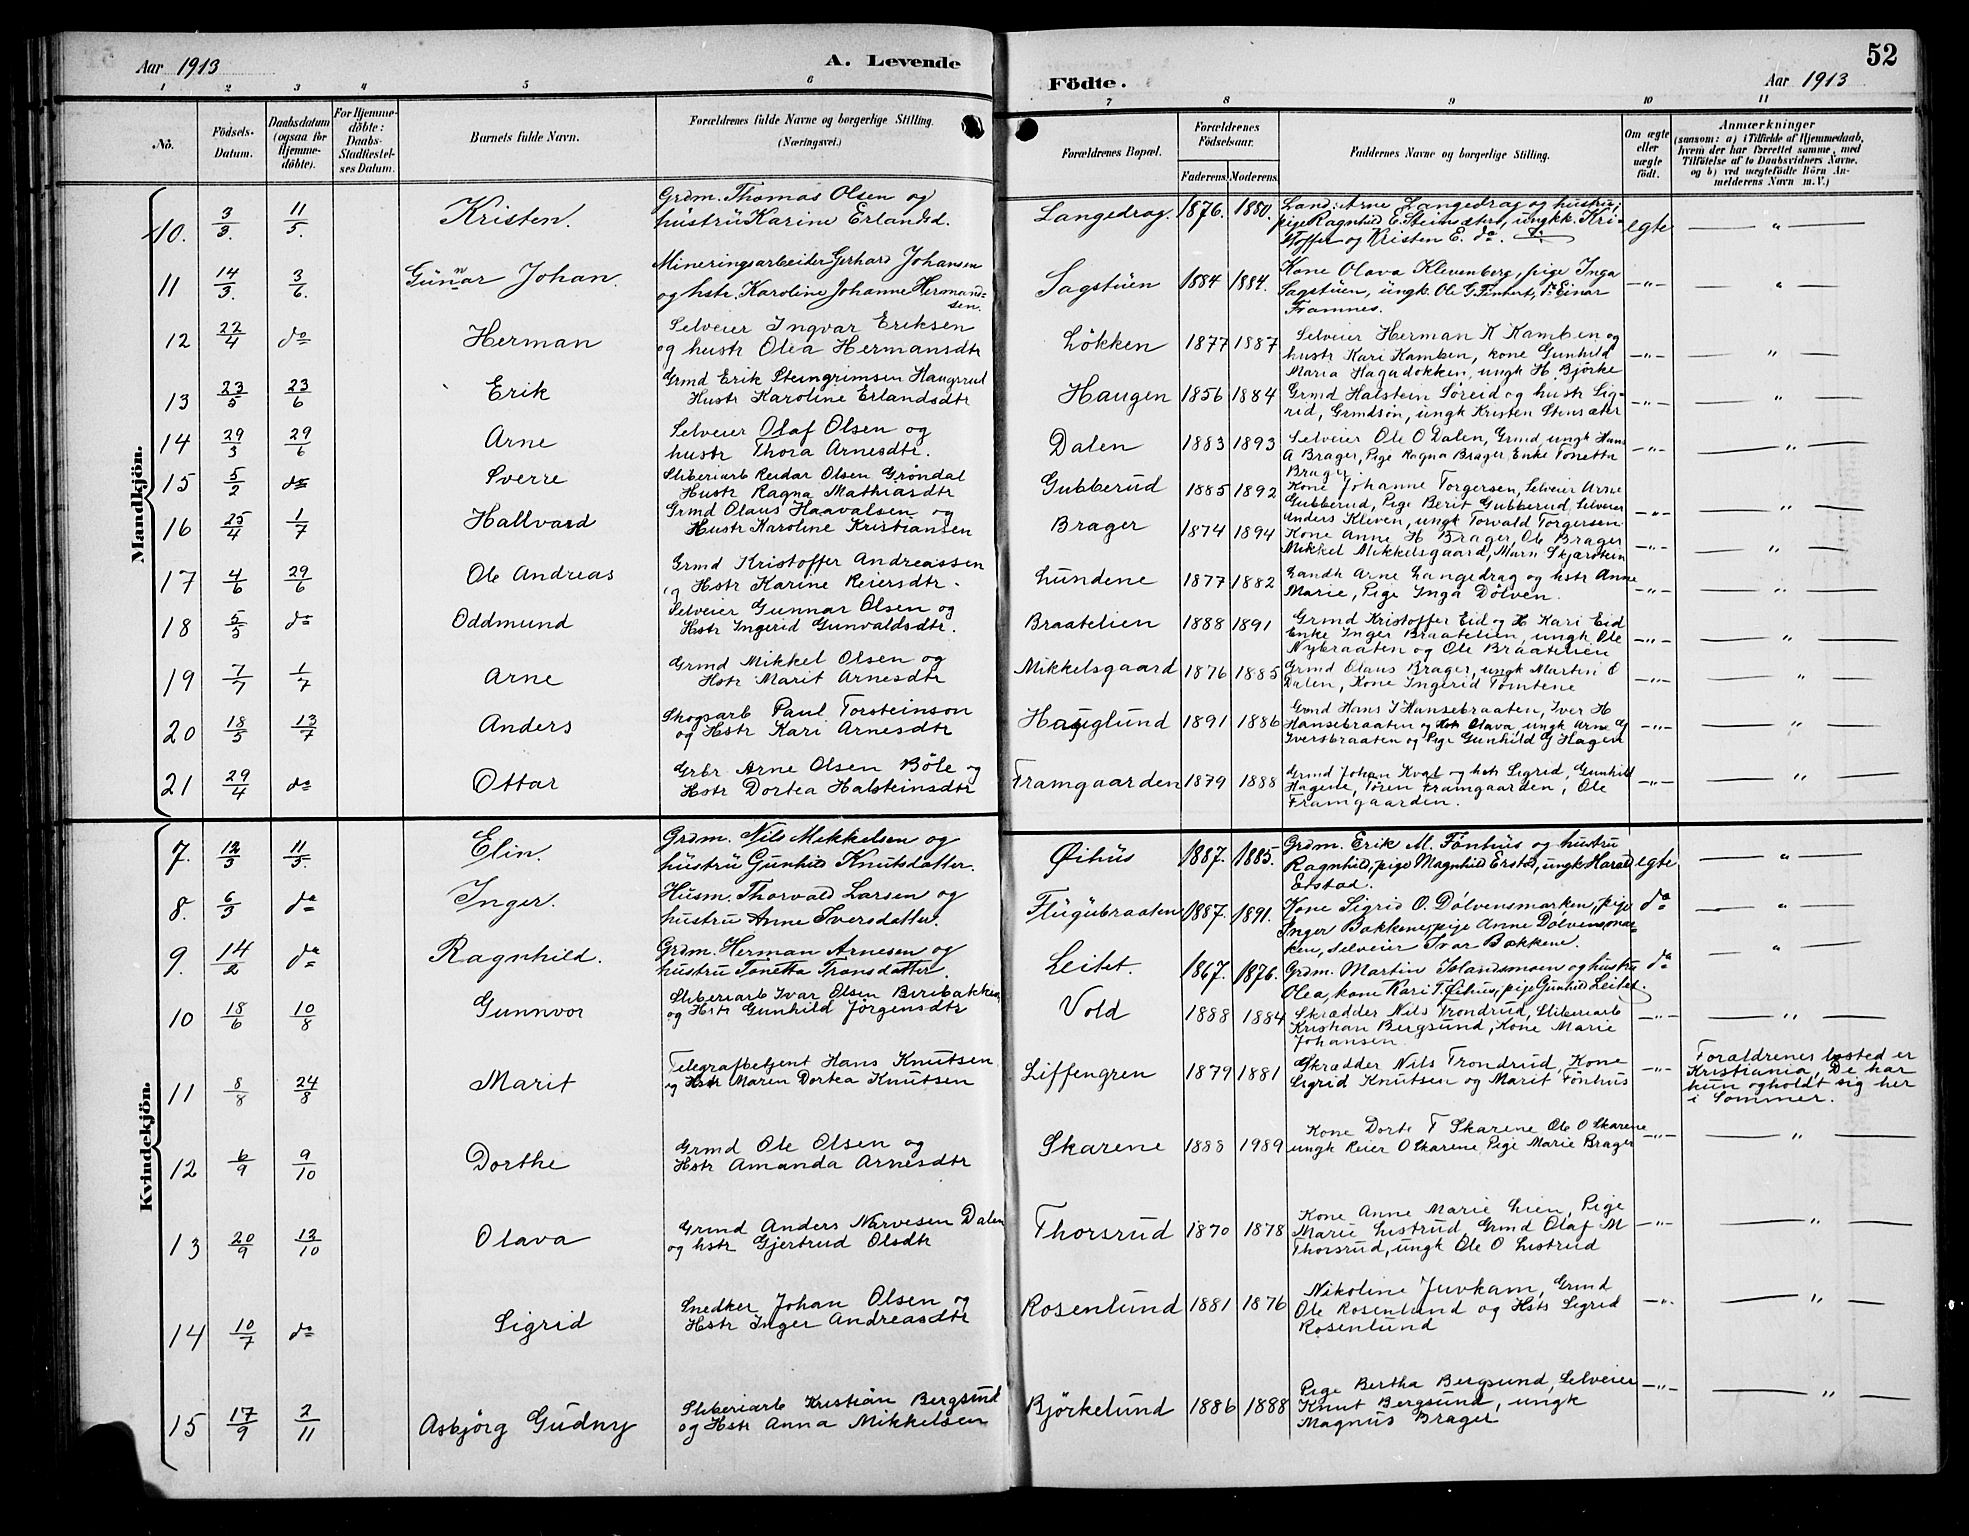 Aar 1913
A. Levende
Födte.
52
Aar 1913
1 2 3 4 5 6 7 8 9 10 11
No.
Födsels-
Datum.
Daabsdatum
(ogsaa for
Hjemme-
döbte).
For Hjemme-
döbte:
Daabs-
Stadfæstel-
ses Datum.
Barnets fulde Navn.
Forældrenes fulde Navne og borgerlige Stilling.
(Næringsvei.)
Forældrenes Bopæl.
Forældrenes
Födselsaar.
Faderens. Moderens.
Faddernes Navne og borgerlige Stilling.
Om ægte
eller
uægte
født.
Anmærkninger
(saasom: a) i Tilfælde af Hjemmedaab,
hvem der har forrettet samme, med
Tilföielse af to Daabsvidners Navne,
og b) ved uægtefödte Börn An-
melderens Navn m. V.)
Mandkjön.
10. 3/3. 11/5. Kristen. Grdm. Thomas Olsen og
hustru Karine Erlandsd. Langedrag. 1876. 1880. Land: Arne Langedrag og hustru,
pige Ragnhild E. Steinsæter, ungk. Kri-
stoffer og Kristen E. do. egte — " —
11 14/3. 3/6. Gunnar Johan. Mineringsarbeider Gerhard Johansen
og hstr. Karoline Johanne Hermand-
sen. Sagstuen 1884 1884. Kone Olava Klevenberg, pige Inga
Sagstuen, ungk. Ole G Finhert, do Einar
Framnes. -"- — " —
12 22/4 do Herman Selveier Ingvar Eriksen
og hustr Olea Hermansdtr Lökken 1877 1887 Selveier Herman K Kamben og
hustr Kari Kamben, kone Gunhild
Maria Hagadokken, ungk H. Björke -"- — " —
13 23/5 23/6 Erik Grmd Erik Steingrimsen Haugerud
Hustr Karoline Erlandsdtr Haugen 1856 1884 Grmd Halstein Söreid og hustr Sig-
rid, Grmdsön, ungk Kristen Stensæter -"- — " —
14 29/3 29/6 Arne Selveier Olaf Olsen og
hustr Thora Arnesdtr. Dalen 1883 1893 Selveier Ole O Dalen, Grmd ungk Hans
A Brager, Pige Ragna Brager, Enke Tonetta
Brager. -"- — " —
15 5/2 do Sverre Sliberiarb Reidar Olsen Gröndal
Hustr Ragna Mathiasdtr Gubberud 1885 1892 Kone Johanne Torgersen, Selveier Arne
Gubberud, Pige Berit Gubberud, Selveier
Anders Kleven, ungk Torvald Torgersen -"- — " —
16 25/4 1/7 Hallvard Grmd Olaus Haavalsen og
Hustr Karoline Kristiansen Brager 1874 1894 Kone Anne H Brager, Ole Brager
Mikkel Mikkelsgaard, Marn Skjærstein -"- — " —
17 4/6 29/6 Ole Andreas Grmd Kristoffer Andreassen
og Hstr Karine Reiersdtr. Lundene 1877 1882 Landh Arne Langedrag og hstr Anne
Marie, Pige Inga Dölven. -"- — " —
18 5/5 do Oddmund Selveier Gunnar Olsen og
Hstr Ingerid Gunvaldsdtr. Braatelien 1888 1891 Grmd Kristoffer Eid og H Kari Eid
Enke Inger Braatelien, ungk Ole
Nybraaten og Ole Braatelien -"- — " —
19 7/7 1/7 Arne Grmd Mikkel Olsen og
Hstr Marit Arnesdtr Mikkelsgaard 1876 1885 Grmd Olaus Brager, ungk Martin O
Dalen, Kone Ingerid Tomtene -"- — " —
20 18/5 13/7 Anders Skogsarb Paul Torsteinson
og Hstr Kari Arnesdtr Hauglund 1891 1886 Grmd Hans I Hansebraaten, Iver H
Hansebraaten og Hstr Olava, ungk Arne G
Iversbraaten og Pige Gunhild G Hagen -"- — " —
21 29/4 do Ottar Grbr Arne Olsen Böle og
Hstr Dortea Halsteinsdtr Framgaarden 1879 1888 Grmd Johan Kval og hstr Sigrid, Gunhild
Hagene, Toren Framgaarden, Ole
Framgaarden. -"- — " —
Kvindekjön.
7. 12/3 11/5 Elin. Grdm. Nils Mikkelsen og
hustru Gunhild Knutsdatter. Øihus 1887. 1885. Grdm. Erik M. Fönhus og hustru
Ragnhild, pige Magnhild Erstad, ungk Harald
Erstad. egte — " —
8. 6/3 do Inger. Husm. Thorvald Larsen og
hustru Anne Iversdatter. Flugubraaten 1887. 1891. Kone Sigrid O. Dölvensmarken, pige
Inger Bakkene, pige Anne Dölvensmar-
ken, selveier Ivar Bakkene. do — " —
9. 14/2 do Ragnhild. Grdm. Herman Arnesen og
hustru Tonetta Tronsdatter. Leitet. 1867. 1876. Grdm. Martin Islandsmoen og hustru
Olea, kone Kari T. Øihus, pige Gunhild Leitet. do — " —
10 18/6 10/8 Gunnvor Sliberiarb Ivar Olsen Biribakken
og Hstr Gunhild Jörgensdtr Vold 1888 1884 Skrædder Nils Trondrud, Sliberiarb
Kristian Bergsund, Kone Marie
Johansen -"- — " —
11 8/8 24/8 Marit Telegrafbetjent Hans Knutsen
og Hstr Maren Dortea Knutsen Liffengren 1879 1881 Skrædder Nils Trondrud, Kone
Sigrid Knutsen og Marit Fönhus -"- Forældrenes bosted er
Kristiania, De har
kun ogholdt sig her
i Sommer.
12 6/9 9/10 Dorthe Grmd Ole Olsen og
Hstr Amanda Arnesdtr Skarene 1888 1989 Kone Dorte T Skarene Ole O Skarene
ungk Reier O Skarene, Pige Marie Brager -"- — " —
13 20/9 12/10 Olava Grmd Anders Narvesen Dalen
og hstr Gjertrud Olsdtr Thorsrud 1870 1878 Kone Anne Marie Lien, Pige
Marie Listrud Grmd Olaf M
Thorsrud, ungk Ole O Listrud -"- — " —
14 10/7 do Sigrid Snedker Johan Olsen og
Hstr Inger Andreasdtr Rosenlund 1881 1876 Nikoline Juvkam, Grmd
Ole Rosenlund og Hstr Sigrid
Rosenlund -"- — " —
15 17/9 2/11 Asbjörg Gudny Sliberiarb Kristian Bergsund
og Hstr Anna Mikkelsen Björkelund 1886 1888 Pige Bertha Bergsund, Selveier
Knut Bergsund, ungk
Magnus Brager -"- — " —